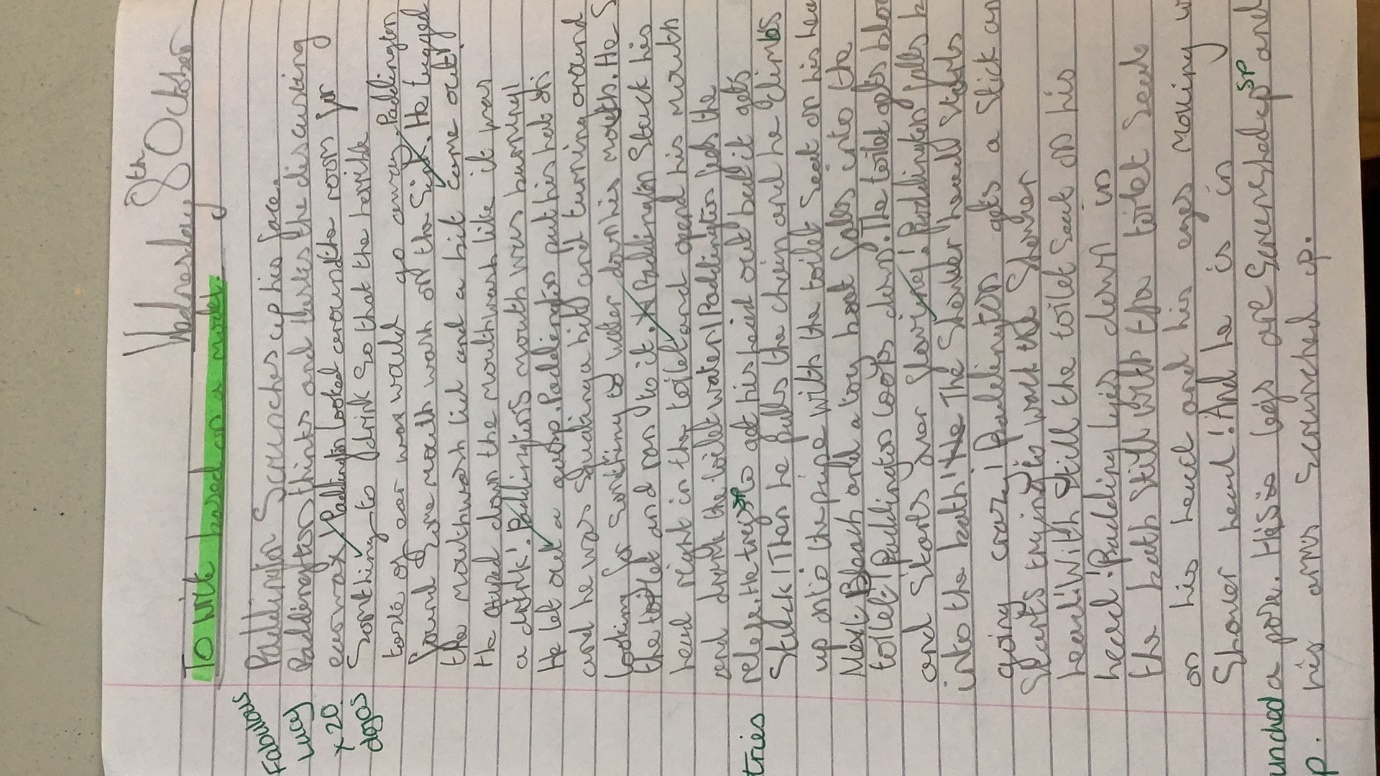 Wednesday 8th October
To write based on a model.
Fabulous
Lucy
x 20
dojos
Paddington Scrunches up his face.
Paddington thinks and thinks the discusting
earwax Paddington looked around the room for
Somthing to drink So that the horible
taste of ear wax would go away. Paddington
found Some mouth wash on the Sink. He tugged
the mouthwash lid and a bit came out!
He down the mouthwash like it was
a drink! Paddingtons mouth was burning!
He let out a gasp. Paddington put his hat on
and he was Squating a bit and turning around
looking for Somthing to water down his mouth. He S
the toilet and ran to it. Paddington Stuck his
head right in the toilet and opend his mouth
and drank the toilet water! Paddington the
He trys sp to get his head out but it gets
tries
Stuck! Then he pulls the chain and he climbs
up onto the pipe with the toilet Seat on his hea
Next Bleach and a toy boat falls into the
toilet! Paddington looks down. The toilet gets bloc
and Starts over flowing! Paddington falls b
into the bath! The Shower head Starts
going crazy! Paddington gets a Stick an
Starts trying to wack the Shower
head! With Still the toilet Seat on his
head! Padding lyes down in
the bath Still with the toilet Seat
on his head and his eyes moving w
Shower head! And he is in
a pose. His legs are Scrunched up sp and
unched
p.
his arms Scrunched up.